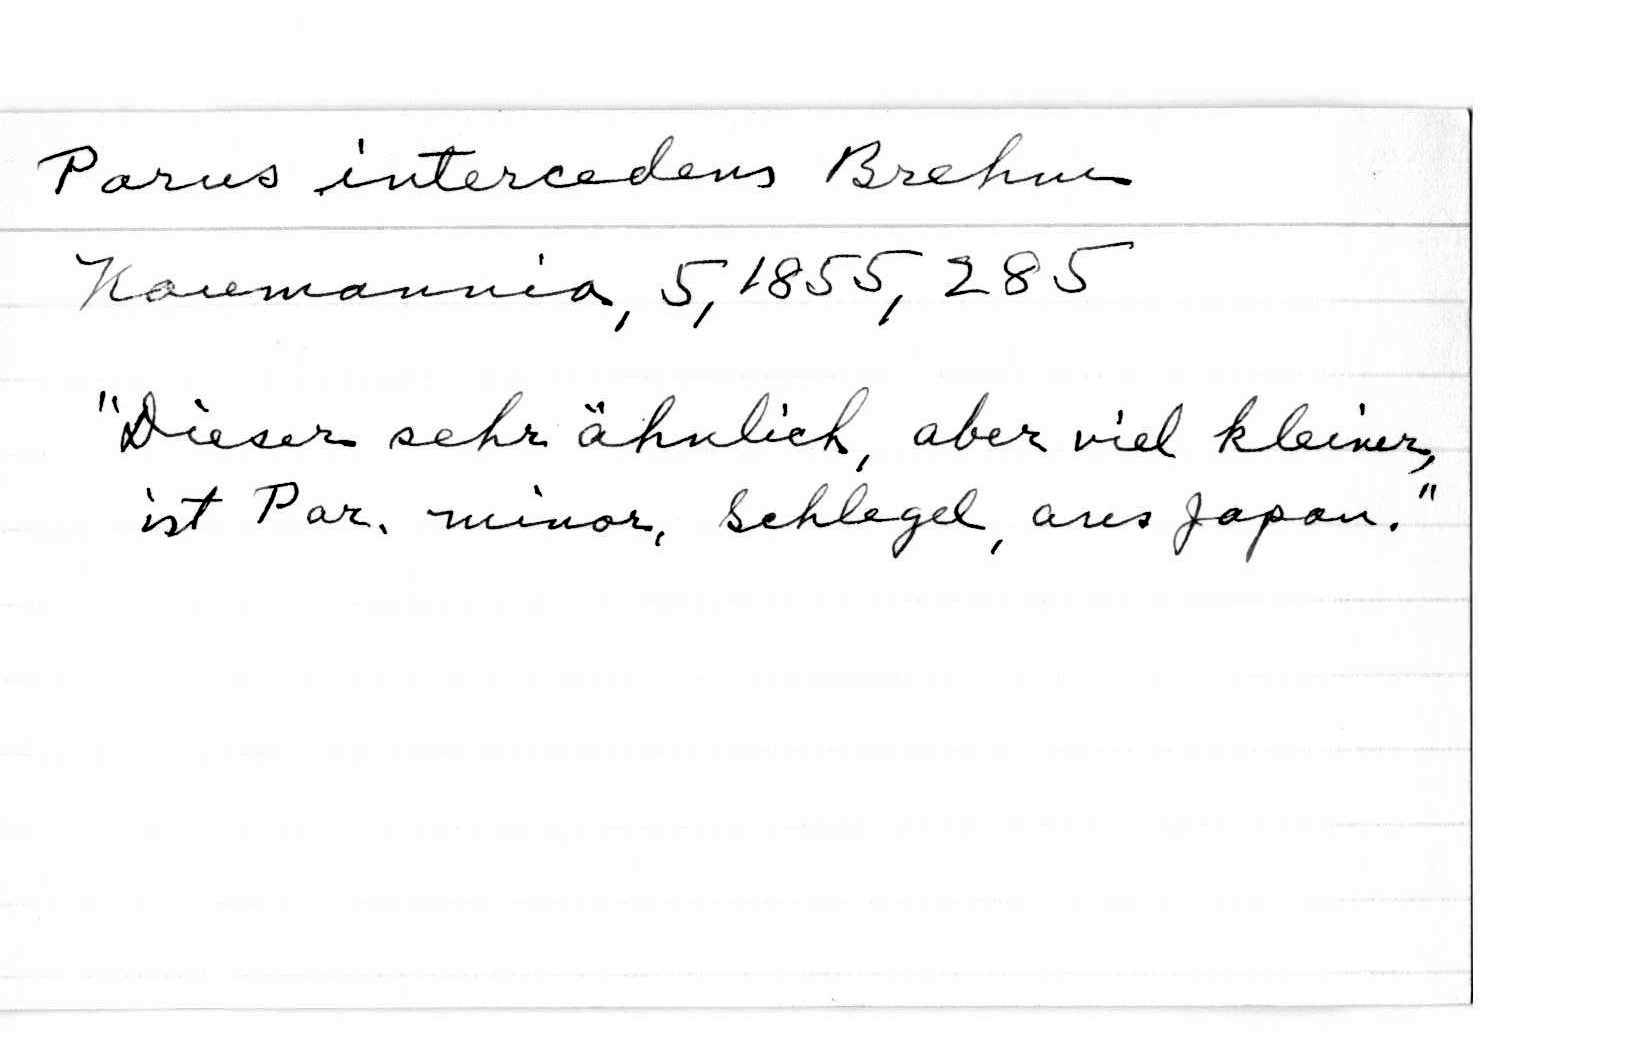 Parus intercedens Brehm
Naumannia, 5, 1855, 285
"Dieser sehr ähnlich, aber viel kleiner,
ist Par. minor, Schlegel, aus Japan."